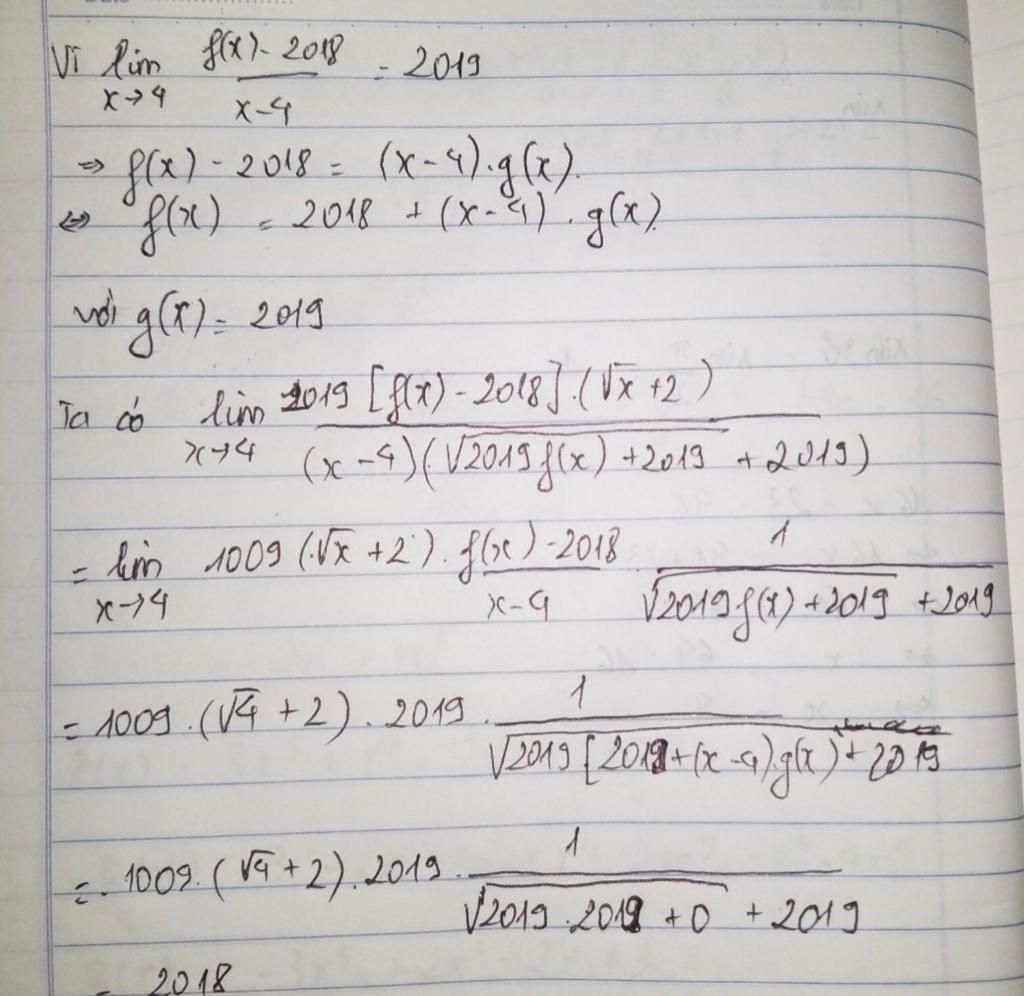 Vì lim x→4 (f(x) - 2018)/(x-4) = 2019
⇒ f(x) - 2018 = (x-4).g(x).
⇔ f(x) = 2018 + (x-4).g(x).
với g(x) = 2019
Ta có lim x→4 (2019 [f(x) - 2018].(√x + 2))/((x-4)(√(2019f(x) + 2019) + 2019))
= lim x→4 1009 (√x + 2). (f(x) - 2018)/(x-4) . 1/(√(2019f(x) + 2019) + 2019)
= 1009.(√4 + 2). 2019. 1/(√(2019[2019+(x-4).g(x)) + 2019
= 1009.(√4 + 2).2019. 1/(√(2019.2019 + 0) + 2019)
= 2018